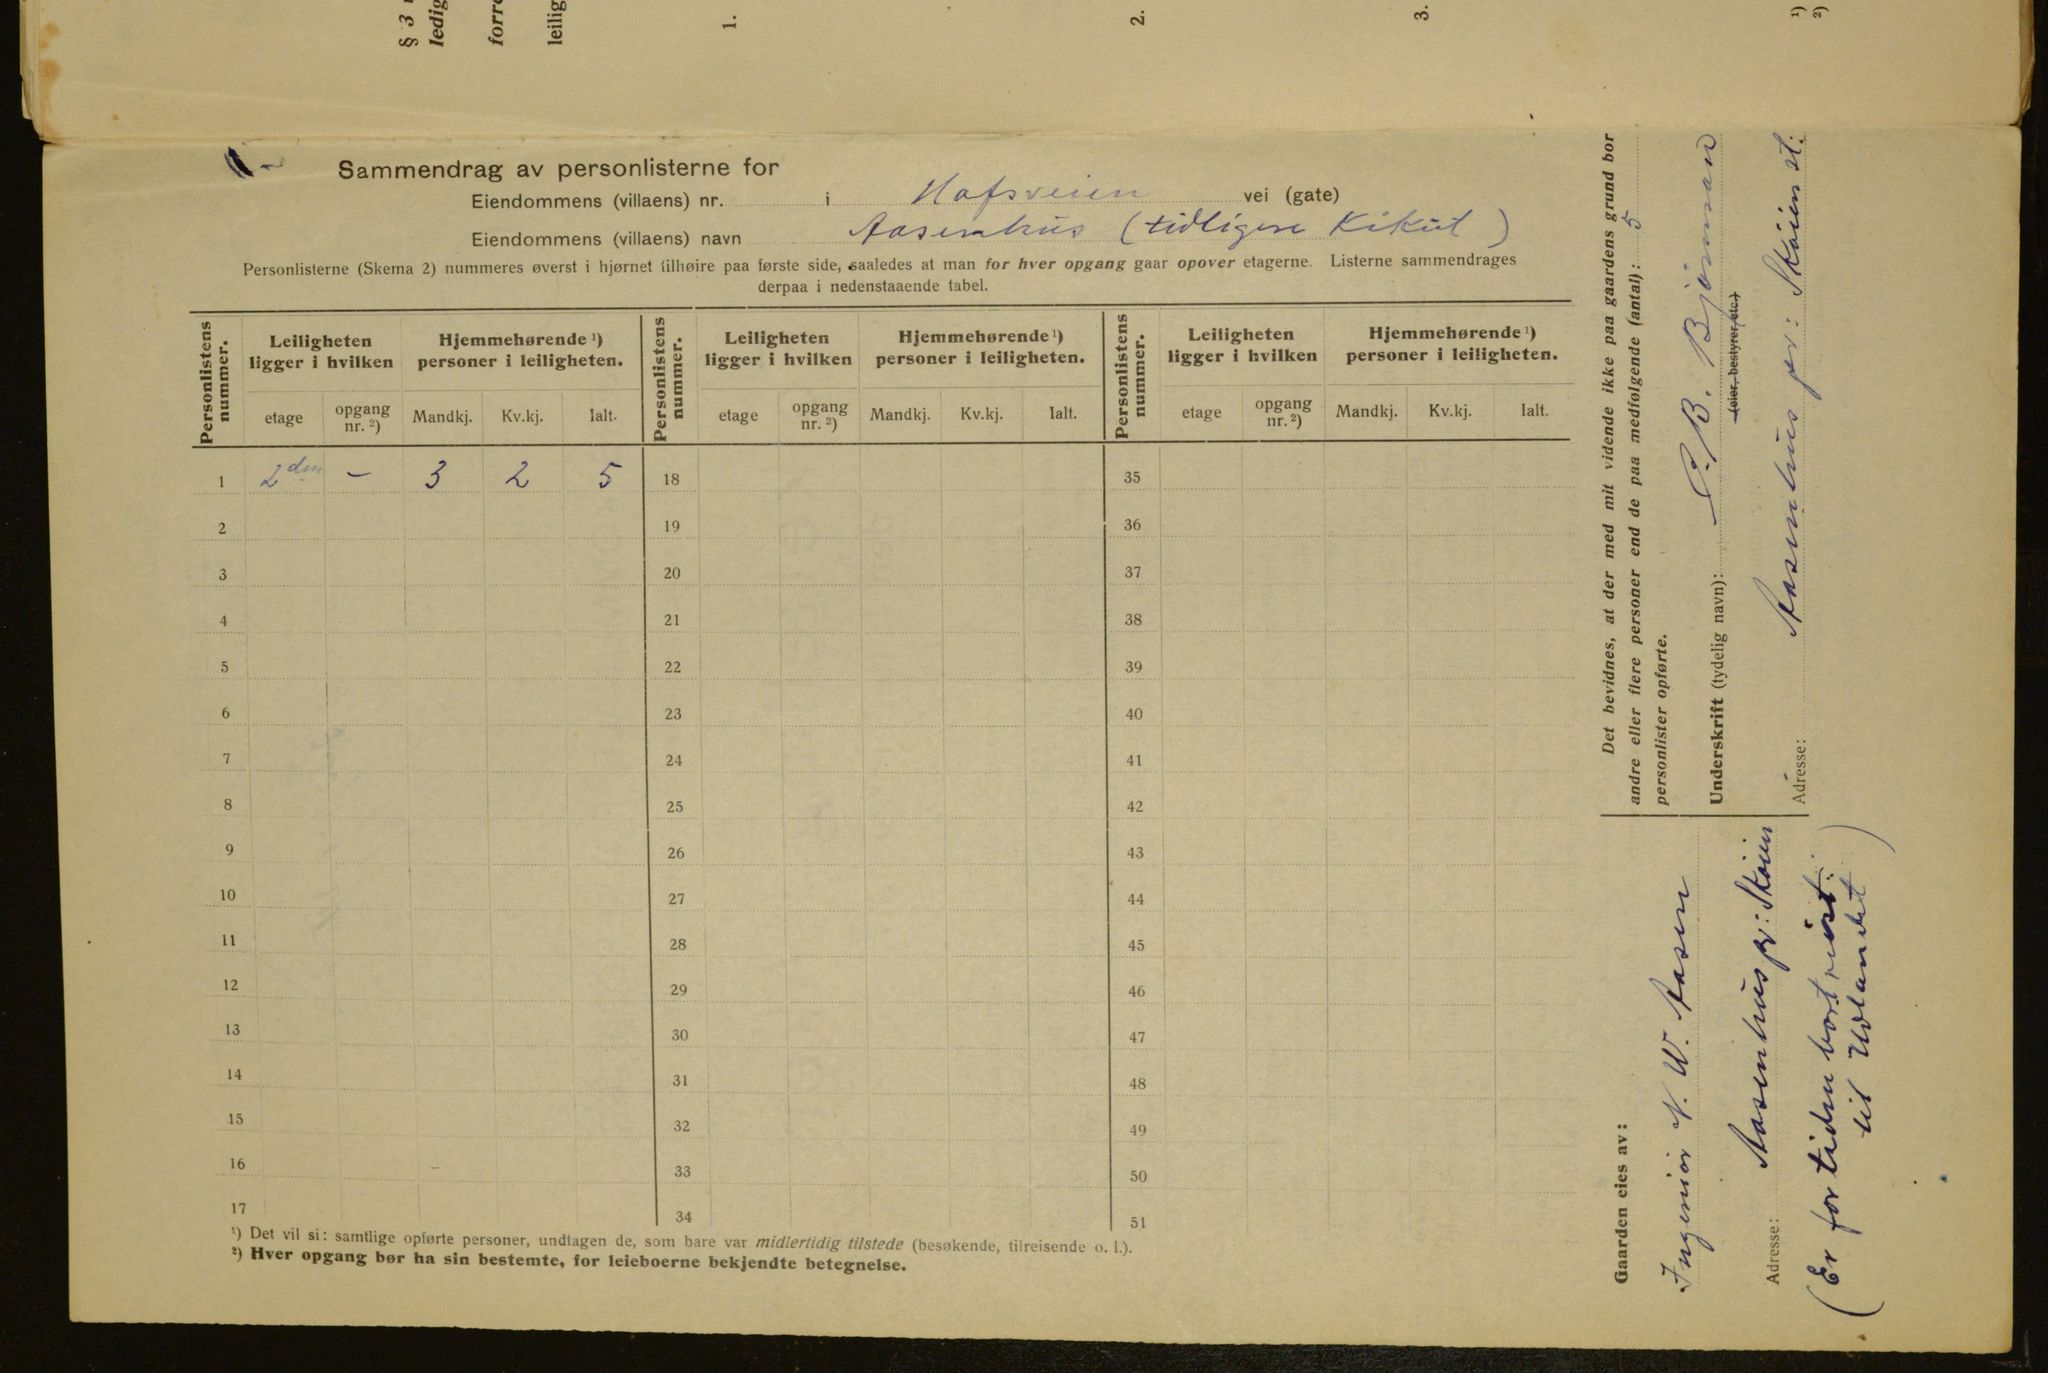 § 3
ledig
forre
leilig
1.
2.
3.
¹)
²)
Sammendrag av personlisterne for
Eiendommens (villaens) nr. i Hofsveien vei (gate)
Eiendommens (villaens) navn Aasenhus (tidligere Kikut)
Personlisterne (Skema 2) nummeres øverst i hjørnet tilhøire paa første side, saaledes at man for hver opgang gaar opover etagerne. Listerne sammendrages
derpaa i nedenstaaende tabel.
Personlistens nummer. Leiligheten ligger i hvilken Hjemmehørende ¹) personer i leiligheten. Personlistens nummer. Leiligheten ligger i hvilken Hjemmehørende ¹) personer i leiligheten. Personlistens nummer. Leiligheten ligger i hvilken Hjemmehørende ¹) personer i leiligheten.
etage opgang nr. ²) Mandkj. Kv.kj. Ialt. etage opgang nr. ²) Mandkj. Kv.kj. Ialt. etage opgang nr. ²) Mandkj. Kv.kj. Ialt.
1 2den – 3 2 5 18 35
2 19 36
3 20 37
4 21 38
5 22 39
6 23 40
7 24 41
8 25 42
9 26 43
10 27 44
11 28 45
12 29 46
13 30 47
14 31 48
15 32 49
16 33 50
17 34 51
¹) Det vil si: samtlige opførte personer, undtagen de, som bare var midlertidig tilstede (besøkende, tilreisende o. l.).
²) Hver opgang bør ha sin bestemte, for leieboerne bekjendte betegnelse.
Det bevidnes, at der med mit vidende ikke paa gaardens grund bor
andre eller flere personer end de paa medfølgende (antal): 5
personlister opførte.
Underskrift (tydelig navn): C. B. Bjørnman
(eier, bestyrer, etc.)
Adresse: Aasenhus pr: Skøien st.
Gaarden eies av:
Ingeniør N. W. Aasen
Adresse: Aasenhus pr: Skøien
(Er for tiden bortreist
til Udlandet)